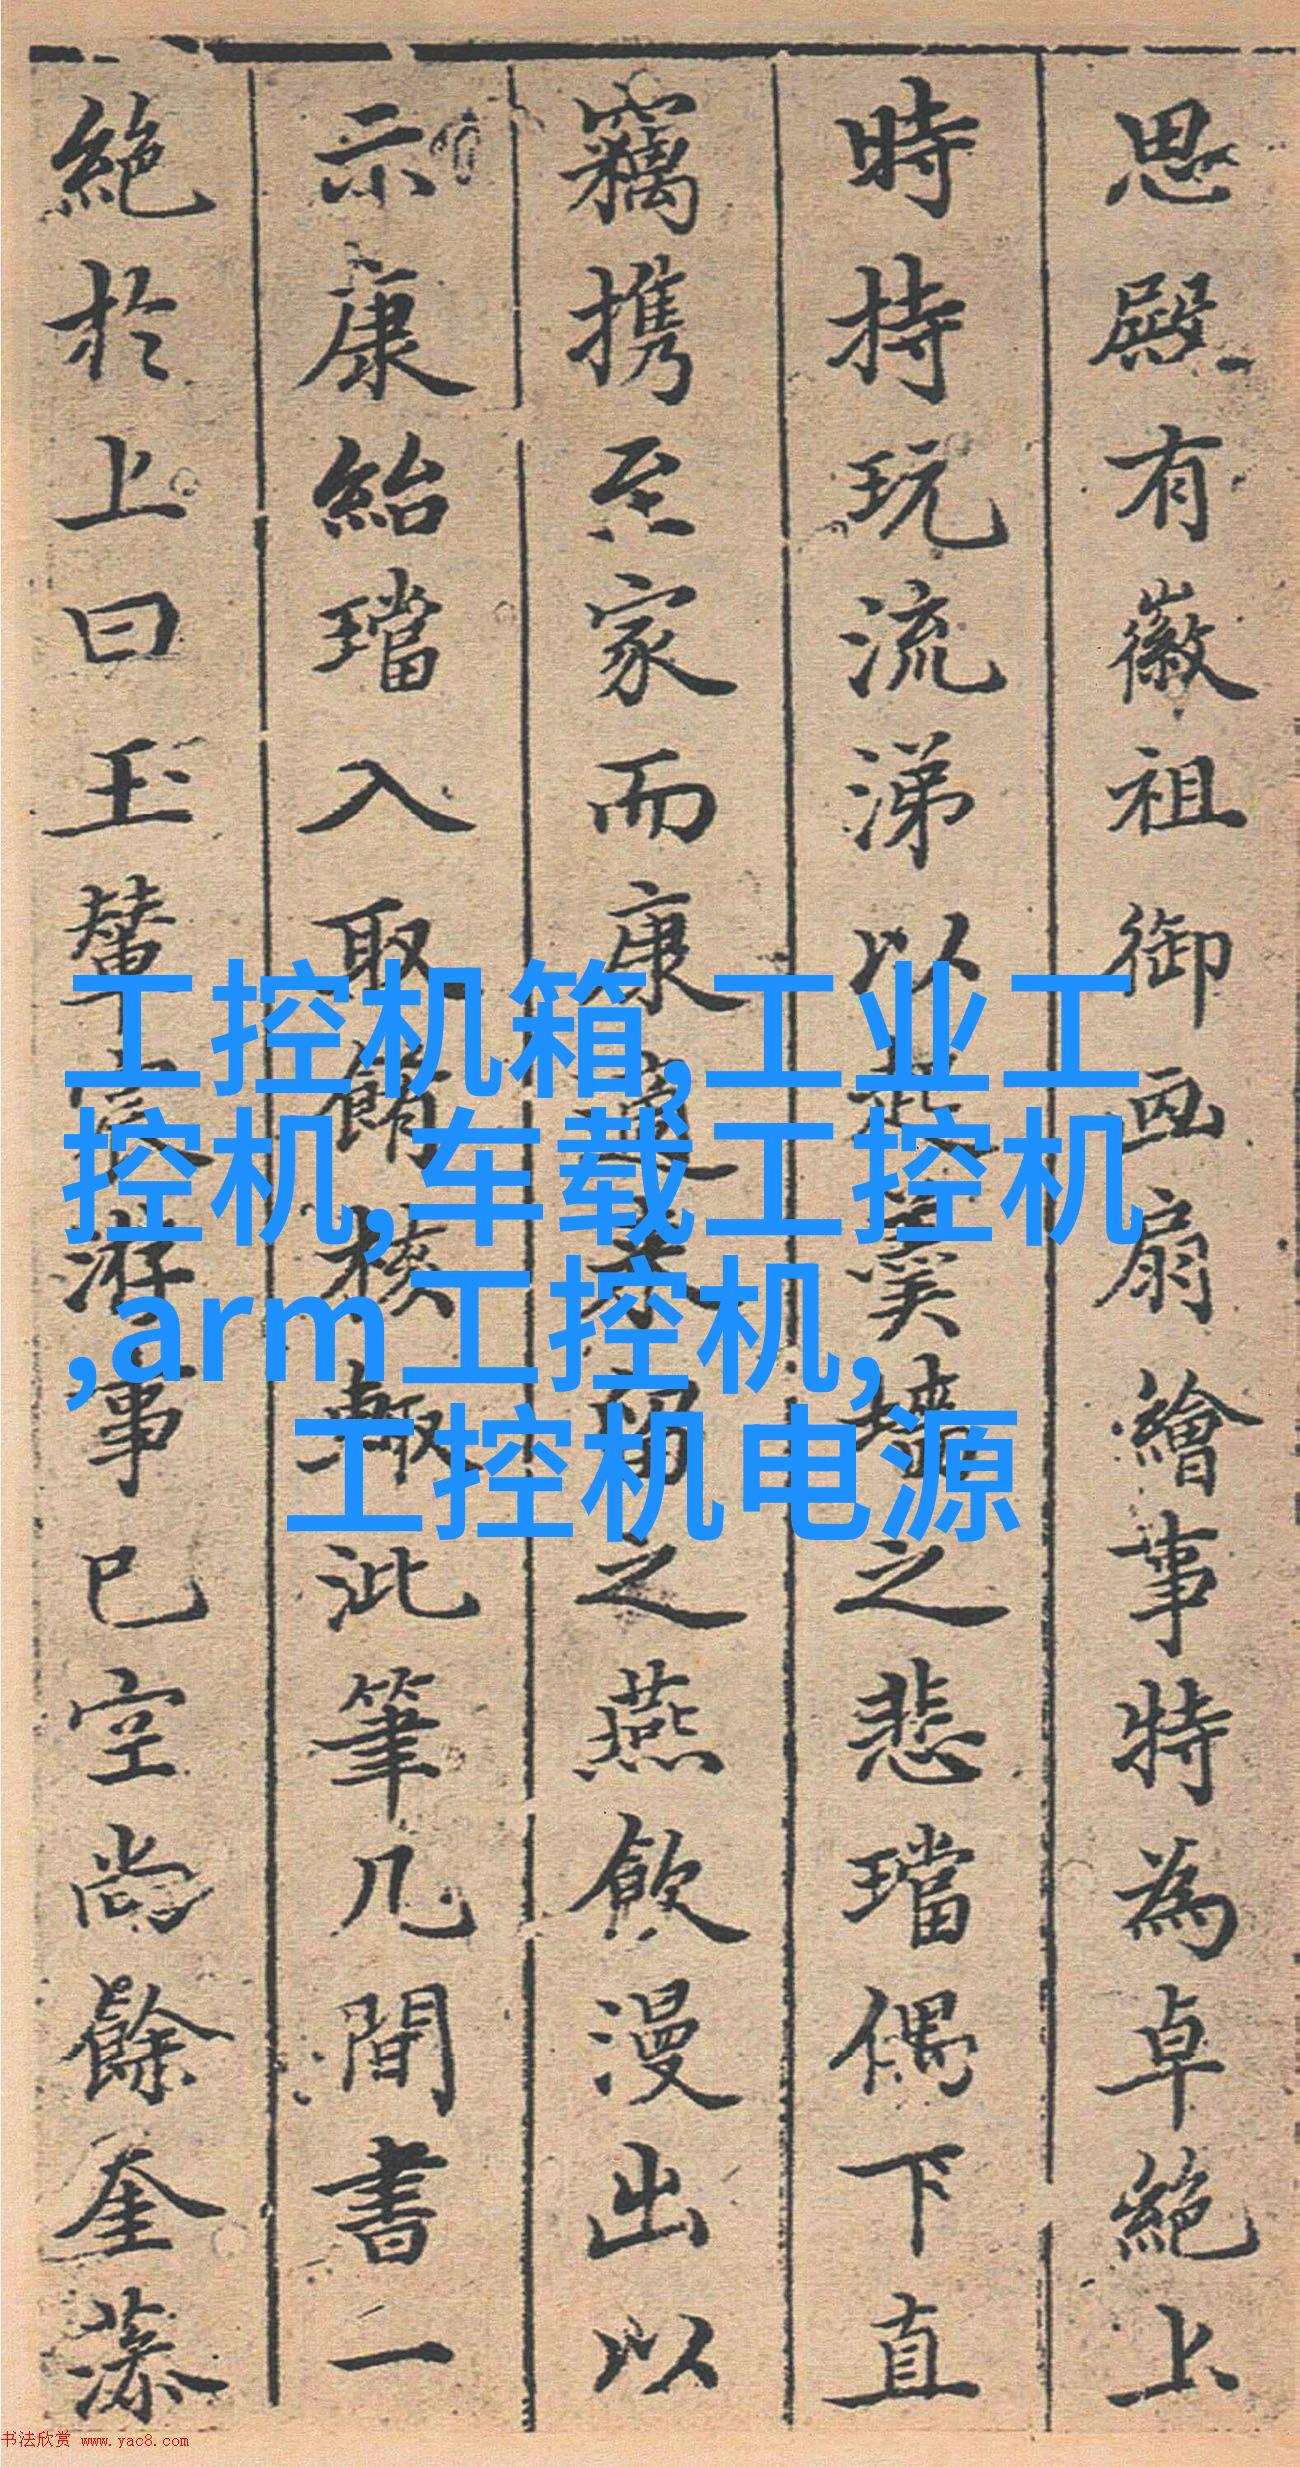 思殿有徽祖御画扇繪事特為卓絶上
時持玩流涕以起羹墻之悲璫偶下直
竊携至家而康適来留之燕飲漫出以
示康紿璫入取餚核輙泚筆几間書一
絶於上曰玉輦宸游事已空尚餘奎藻
工控机箱,工业工
控机,车载工控机
,arm工控机,
工控机电源
书法欣赏 www.yac8.com